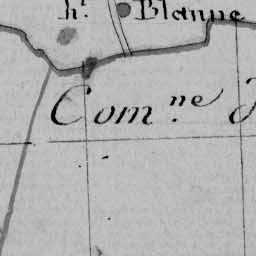 h.t Blanne
Com.ne